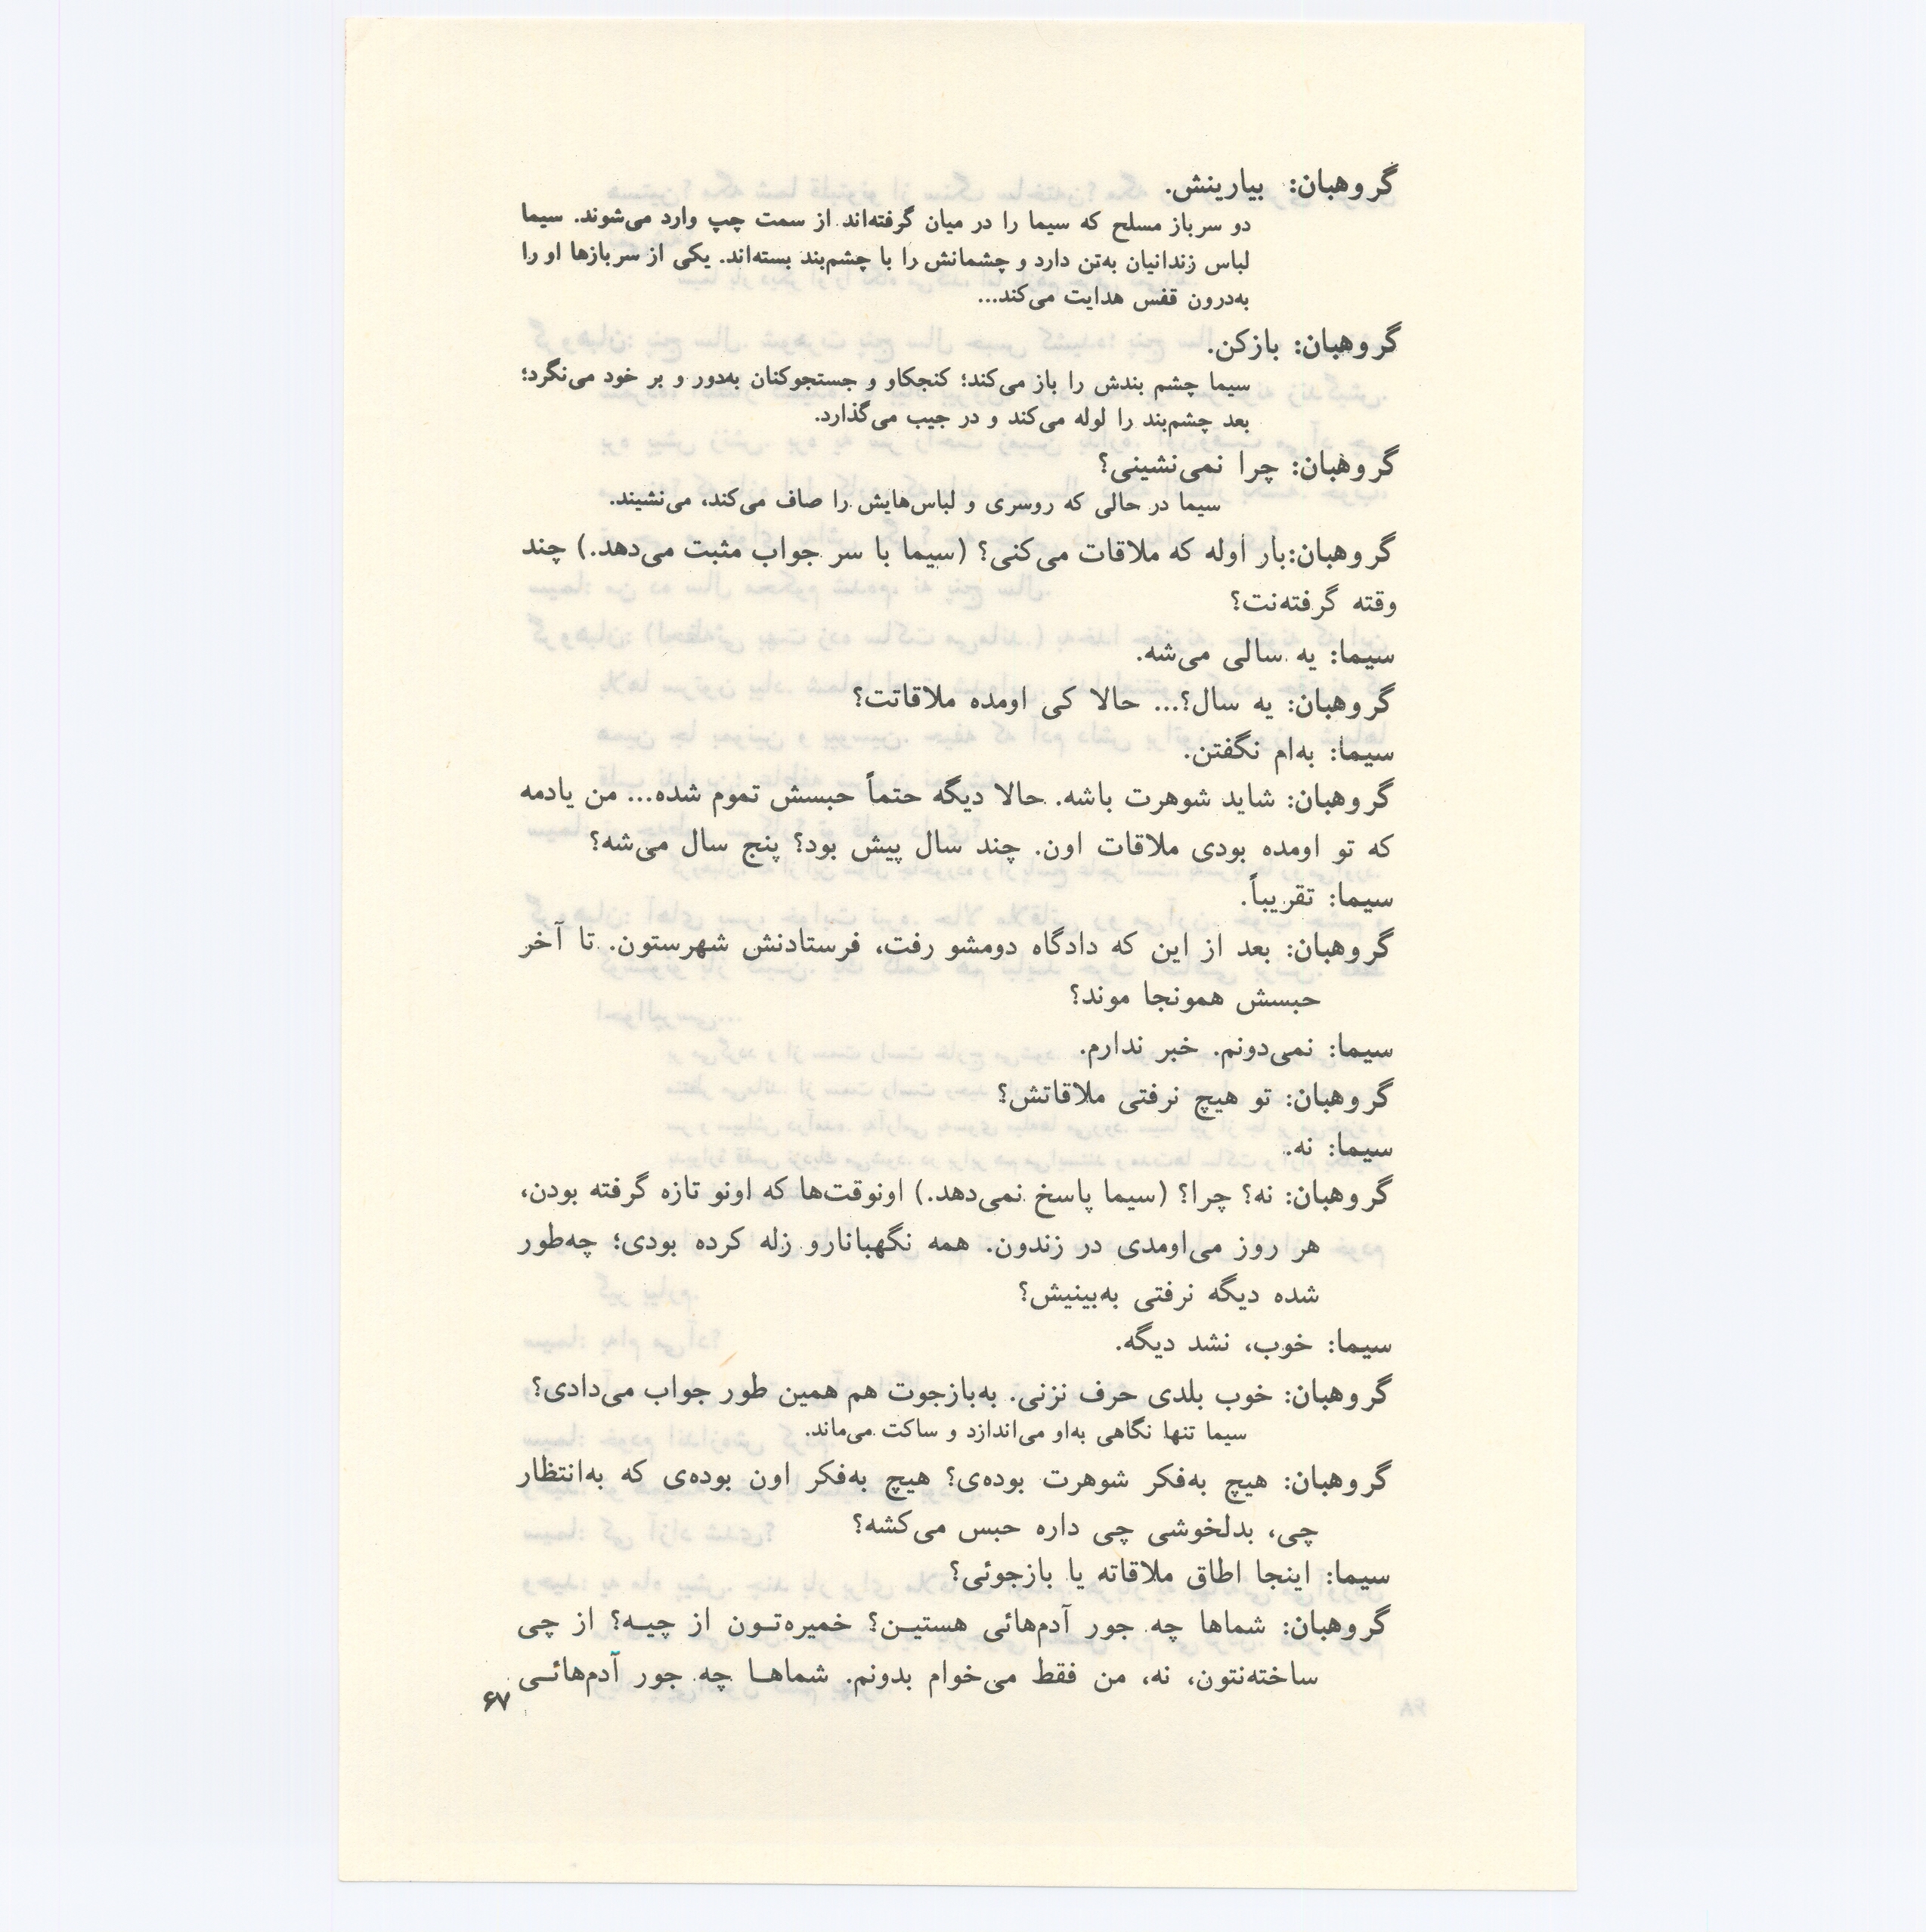 گروهبان: بیارینش.
دو سرباز مسلح که سیما را در میان گرفته‌اند از سمت چپ وارد می‌شوند. سیما
لباس زندانیان به‌تن دارد و چشمانش را با چشم‌بند بسته‌اند. یکی از سربازها او را
به‌درون قفس هدایت می‌کند...
گروهبان: بازکن.
سیما چشم بندش را باز می‌کند؛ کنجکاو و جستجوکنان به‌دور و بر خود می‌نگرد؛
بعد چشم‌بند را لوله می‌کند و در جیب می‌گذارد.
گروهبان: چرا نمی‌نشینی؟
سیما در حالی که روسری و لباس‌هایش را صاف می‌کند، می‌نشیند.
گروهبان:بار اوله که ملاقات می‌کنی؟ (سیما با سر جواب مثبت می‌دهد.) چند
وقته گرفته‌نت؟
سیما: یه سالی می‌شه.
گروهبان: یه سال؟... حالا کی اومده ملاقاتت؟
سیما: به‌ام نگفتن.
گروهبان: شاید شوهرت باشه. حالا دیگه حتماً حبسش تموم شده... من یادمه
که تو اومده بودی ملاقات اون. چند سال پیش بود؟ پنج سال می‌شه؟
سیما: تقریباً.
گروهبان: بعد از این که دادگاه دومشو رفت، فرستادنش شهرستون. تا آخر
حبسش همونجا موند؟
سیما: نمی‌دونم. خبر ندارم.
گروهبان: تو هیچ نرفتی ملاقاتش؟
سیما: نه.
گروهبان: نه؟ چرا؟ (سیما پاسخ نمی‌دهد.) اونوقت‌ها که اونو تازه گرفته بودن،
هر روز می‌اومدی در زندون. همه نگهبانارو زله کرده بودی؛ چه‌طور
شده دیگه نرفتی به‌بینیش؟
سیما: خوب، نشد دیگه.
گروهبان: خوب بلدی حرف نزنی. به‌بازجوت هم همین طور جواب می‌دادی؟
سیما تنها نگاهی به‌او می‌اندازد و ساکت می‌ماند.
گروهبان: هیچ به‌فکر شوهرت بوده‌ی؟ هیچ به‌فکر اون بوده‌ی که به‌انتظار
چی، بدلخوشی چی داره حبس می‌کشه؟
سیما: اینجا اطاق ملاقاته یا بازجوئی؟
گروهبان: شماها چه جور آدم‌هائی هستیـن؟ خمیره‌تـون از چیـه؟ از چی
ساخته‌نتون، نه، من فقط می‌خوام بدونم. شماهـا چه جور آدم‌هائـی
۶۷